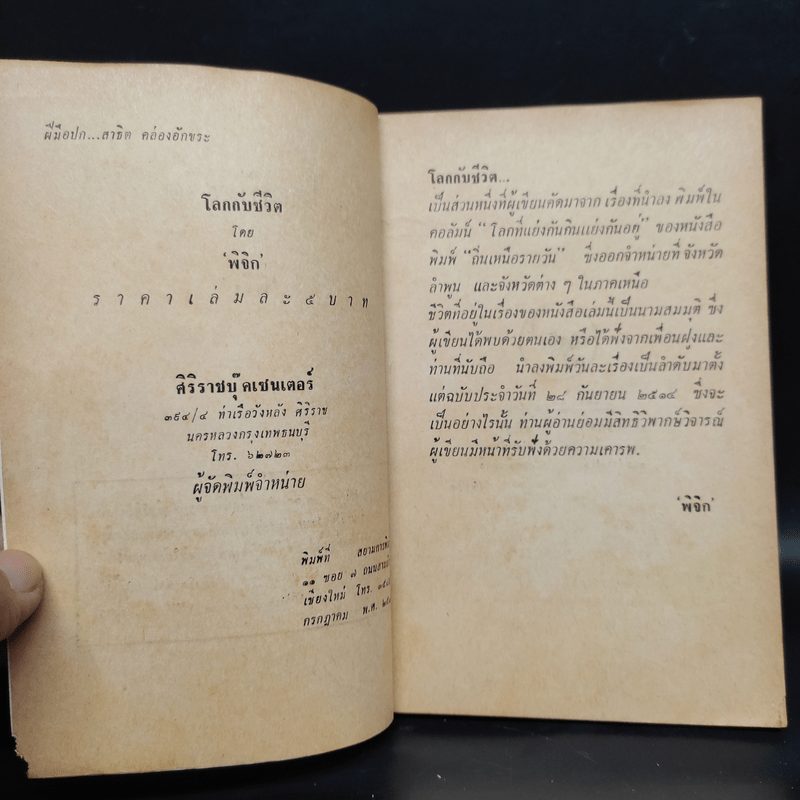 ฝีมือปก...สาธิต คล่องอักขระ
โลกกับชีวิต
โดย
'พิจิก'
ราคาเล่มละ ๕ บาท
ศิริราชบุ๊คเซนเตอร์
๓๙๔/๔ ท่าเรือวังหลัง ศิริราช
นครหลวงกรุงเทพธนบุรี
โทร. ๖๒๗๒๓
ผู้จัดพิมพ์จำหน่าย
พิมพ์ที่ สยามการ
๑๑ ซอย ๗
เชียงใหม่ โทร.
กรกฎาคม พ.ศ.
โลกกับชีวิต...
เป็นส่วนหนึ่งที่ผู้เขียนคัดมาจาก เรื่องที่นำลง พิมพ์ใน
คอลัมน์ " โลกที่แย่งกันกินแย่งกันอยู่ " ของหนังสือ
พิมพ์ "ถิ่นเหนือรายวัน" ซึ่งออกจำหน่ายที่ จังหวัด
ลำพูน และจังหวัดต่าง ๆ ในภาคเหนือ
ชีวิตที่อยู่ในเรื่องของหนังสือเล่มนี้เป็นนามสมมุติ ซึ่ง
ผู้เขียนได้พบด้วยตนเอง หรือได้ฟังจากเพื่อนฝูงและ
ท่านที่นับถือ นำลงพิมพ์วันละเรื่องเป็นลำดับมาตั้ง
แต่ฉบับประจำวันที่ ๒๘ กันยายน ๒๕๑๔ ซึ่งจะ
เป็นอย่างไรนั้น ท่านผู้อ่านย่อมมีสิทธิวิพากษ์วิจารณ์
ผู้เขียนมีหน้าที่รับฟังด้วยความเคารพ.
'พิจิก'